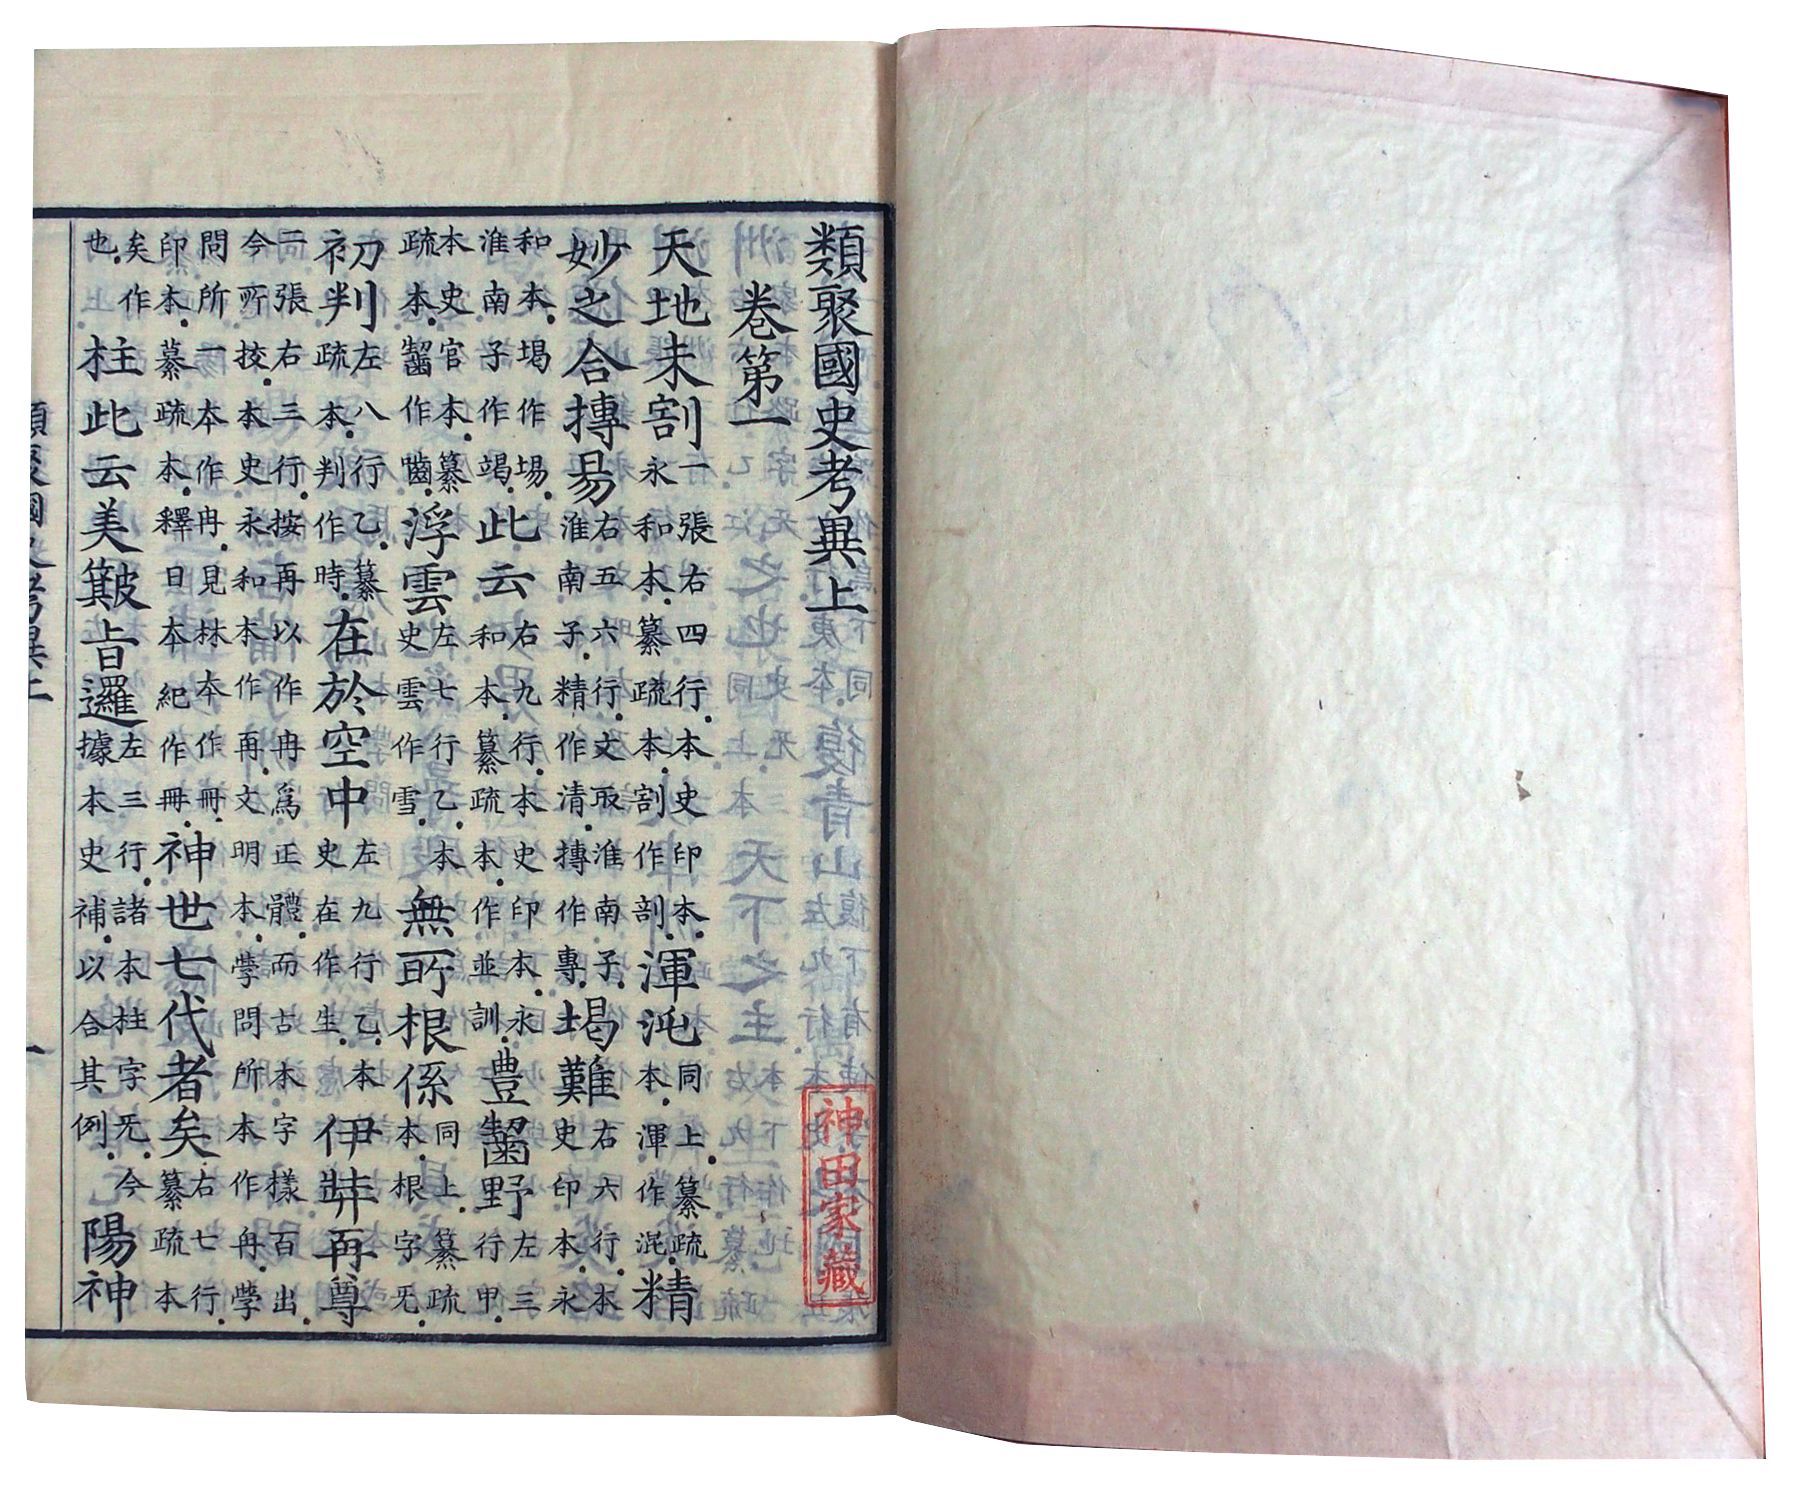 類聚國史考異上
卷第一
天地未割一張右四行本史印本永和本纂疏本割作剖渾沌同上纂疏本渾作混精
妙之合摶易右五六行文取淮南子淮南子精作清摶作專堨難右六行本史印本永
和本堨作場淮南子作竭此云右九行本史印本永和本纂疏本作並訓豊齧野左三行甲
本史官本纂疏本齧作嚙浮雲左七行乙本史雲作雪無所根係同上纂疏本根字旡
初判左八行乙纂疏本判作時在於空中左九行乙本史在作生伊弉再尊
二張右三行按再以作冉爲正體而古本字樣百出今所挍本史永和本作再文明本學問所本作冉學
問所一本作冉見林本作冊印本纂疏本釋日本紀作冊神世七代者矣右七行纂疏本
矣作也柱此云美簸旨邏左三行諸本柱字旡今據本史補以合其例陽神
神田家藏